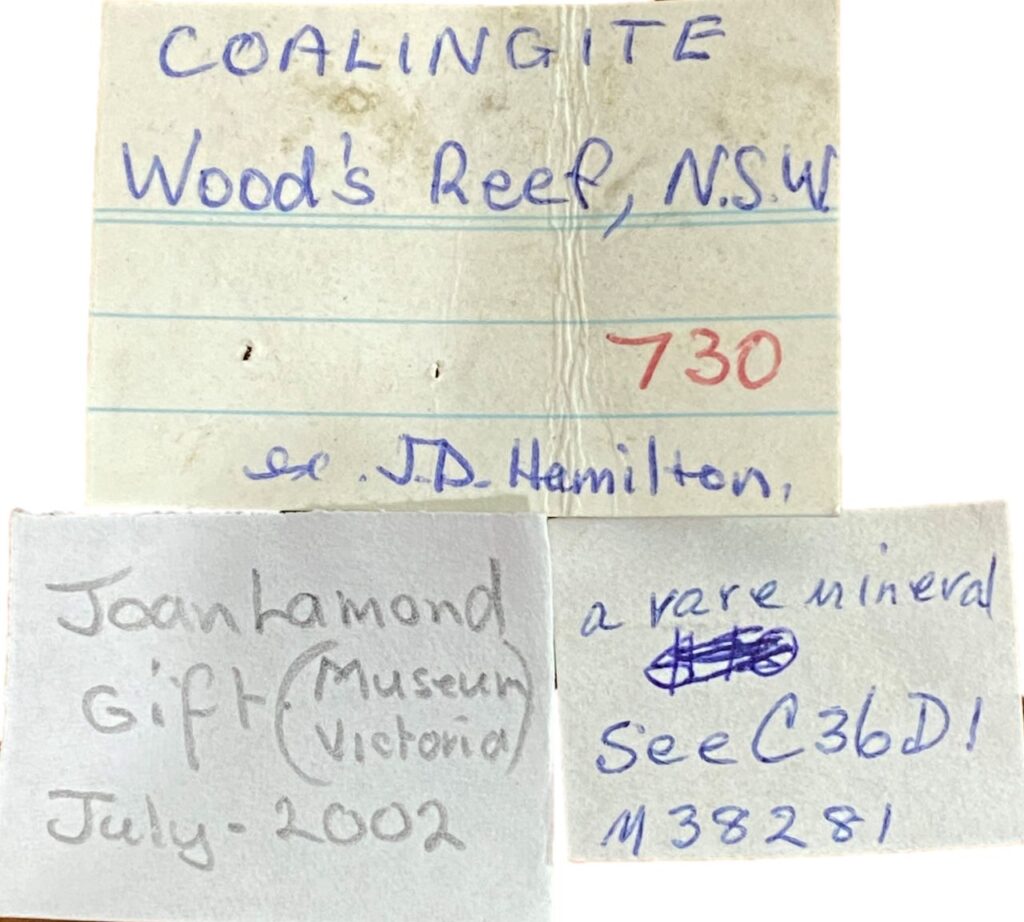 COALINGITE
Wood's Reef, N.S.W.
730
ex. J.D. Hamilton.
Joan Lamond
Gift (Museum
Victoria)
July - 2002
a rare mineral
see C36D1
M38281